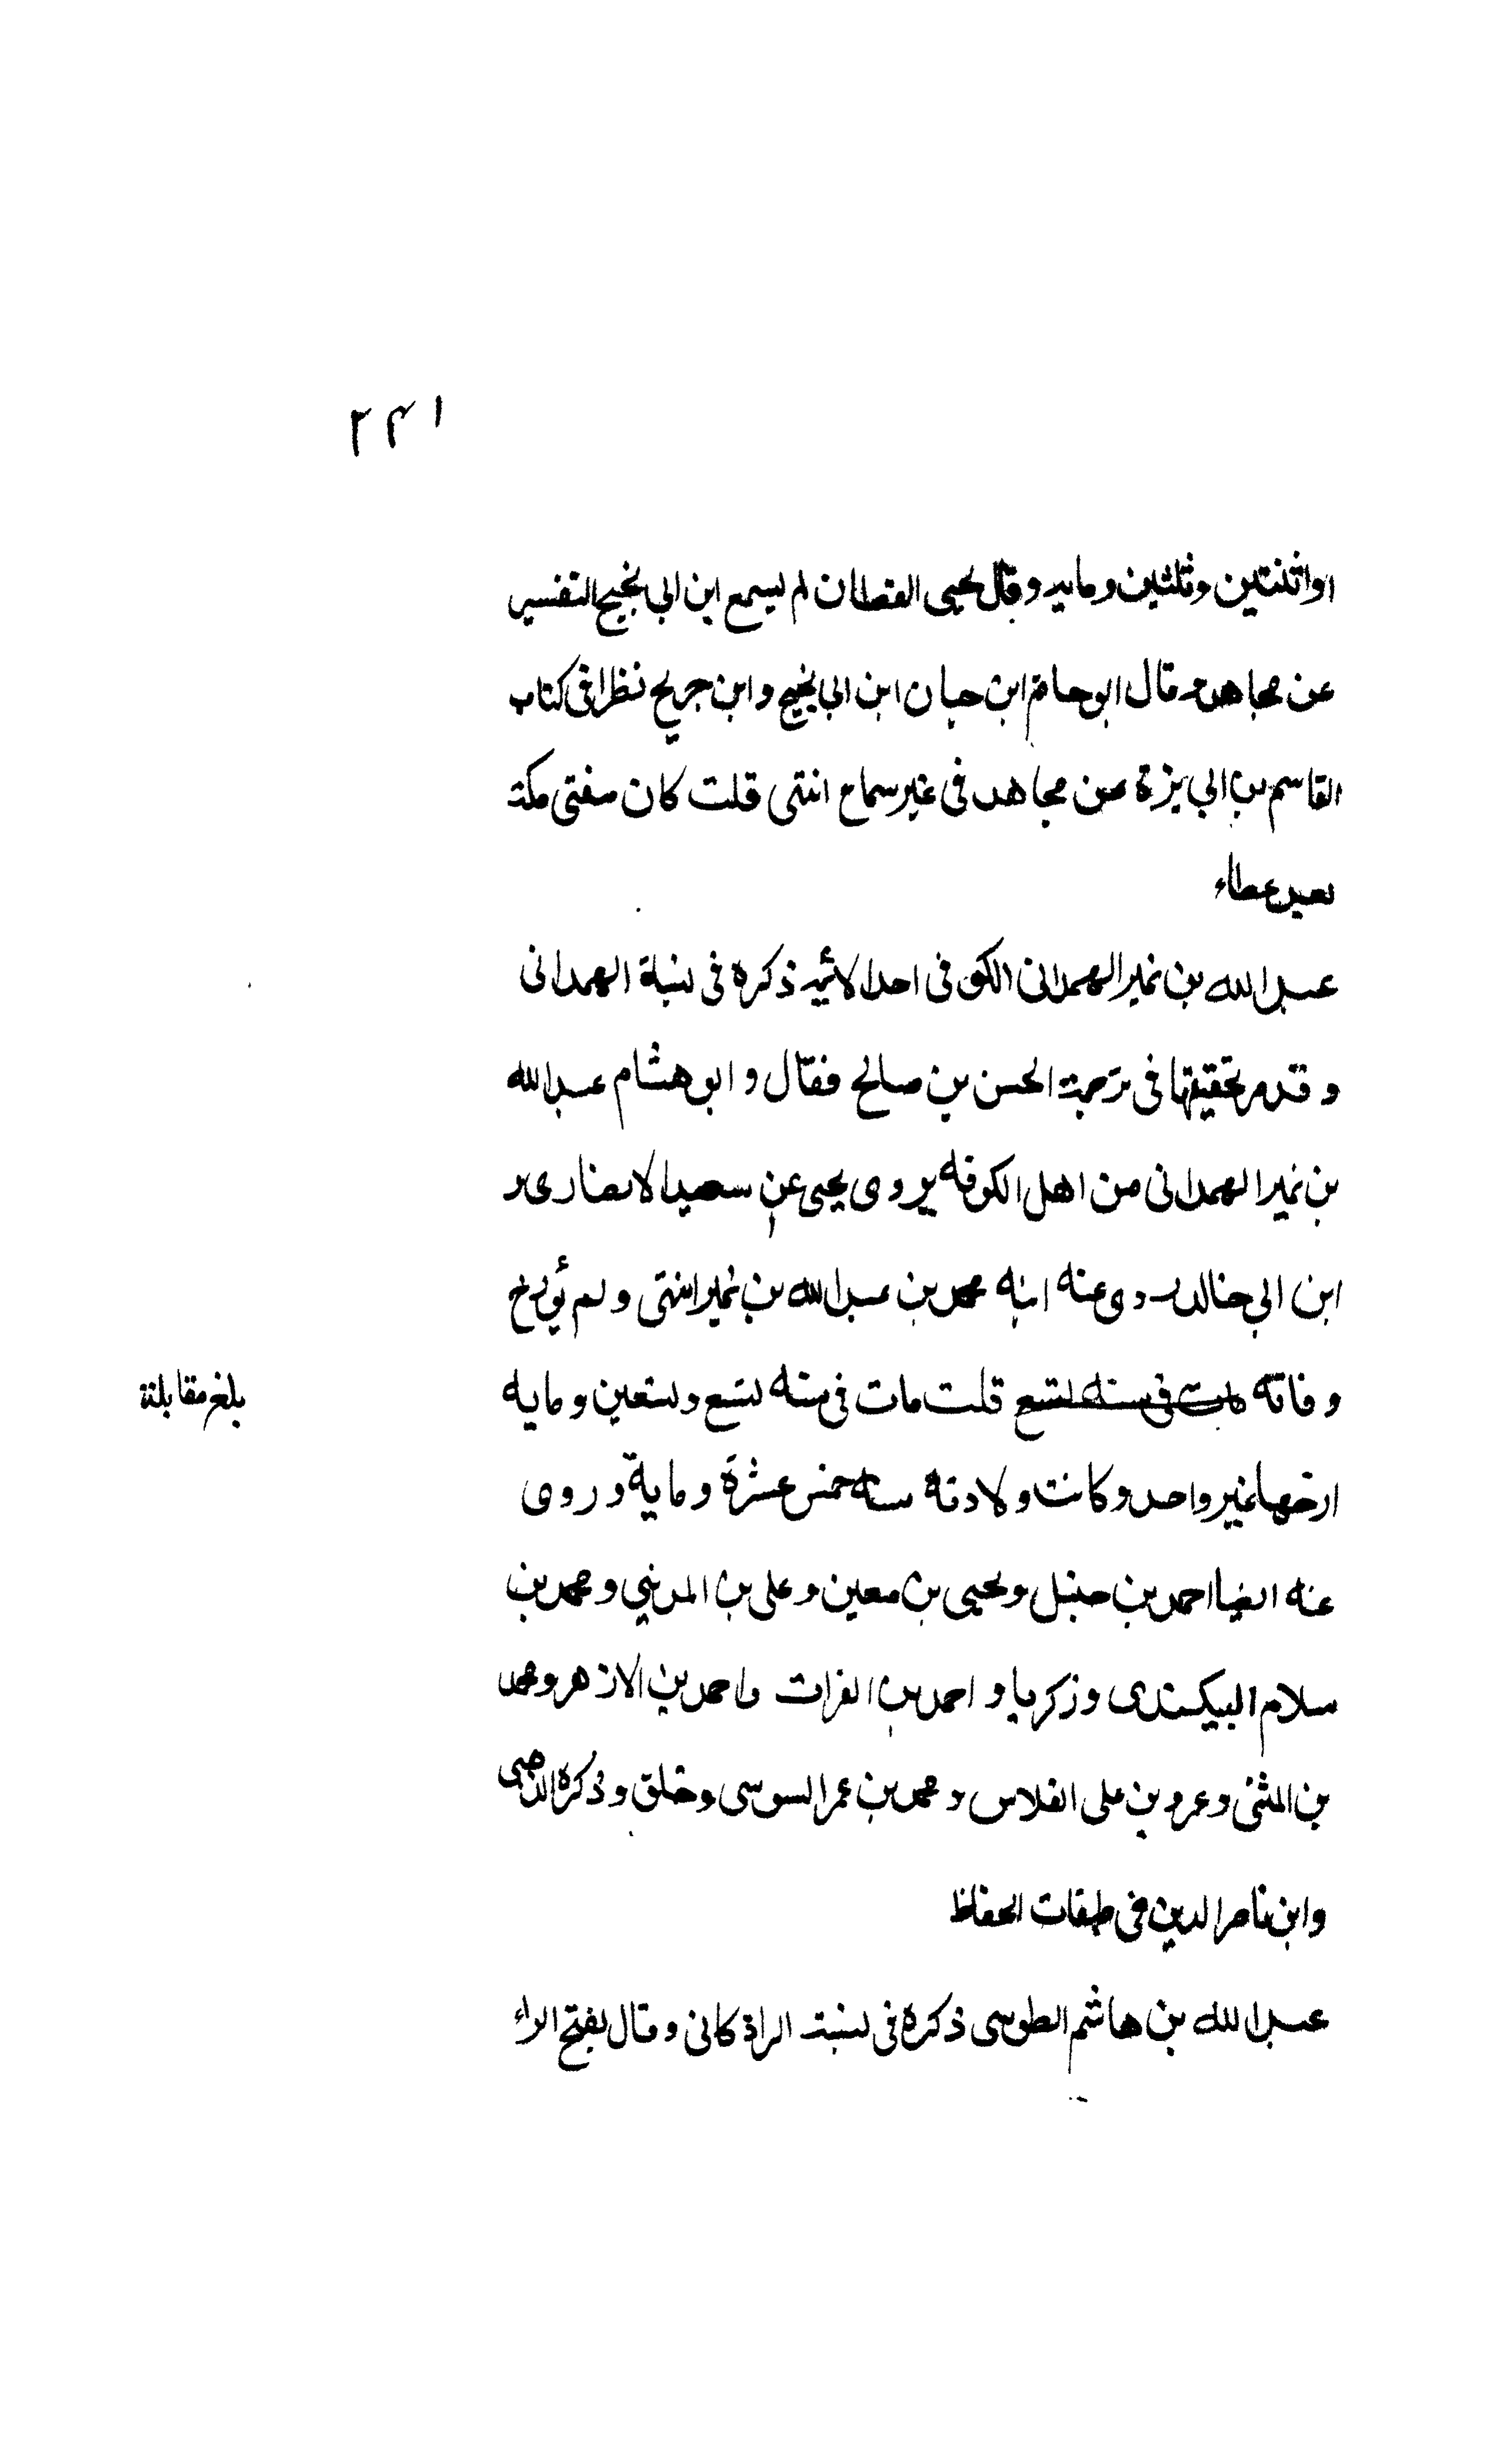 ٢٤١
او اثنتين وثلثين ومايه وقال يحيى القطان لم يسمع ابن ابي نجيح التفسير
عن مجاهد وقال ابو حاتم ابن حبان ابن ابي نجيح وابن جريح نظرا في كتاب
القاسم بن ابي بزة عن مجاهد في غير سماع انتهى قلت كان مفتى مكة
بعد عطاء
عبد الله بن نمير الهمدانى الكوفى احد الائمة ذكره فى نسبة الهمدانى
وقدم تحقيقها فى ترجمة الحسن بن صالح فقال و ابو هشام عبد الله
بن نمير الهمدانى من اهل الكوفه يروى يحيى عن سعيد الانصارى و
ابن ابي خالد روى عنه ابنه محمد بن عبد الله بن نمير انتهى ولم يؤرخ
وفاته مات فى سنه تسع قلت مات فى سنه تسع وتسعين ومايه
بلغ مقابلة
ارخها غير واحد وكانت ولادته سنه خمس عشرة ومايه وروى
عنه ايضا احمد بن حنبل ويحيى بن معين وعلى بن المدينى ومحمد بن
سلام البيكندى وزكريا و احمد بن الفرات واحمد بن الازهر ومحمد
بن المثنى وعمرو بن على الفلاس ومحمد بن عمر السوسى وخلق وذكره الذهبى
وابن ناصر الدين فى طبقات الحفاظ
عبد الله بن هاشم الطوسى ذكره فى نسبت الراذكانى وقال بفتح الراء